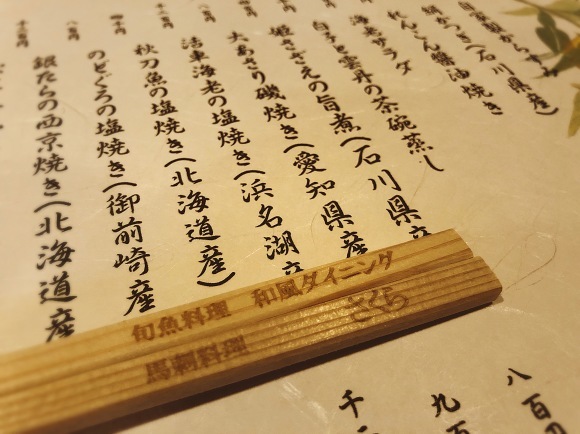 れんこん醤油焼き
海老サラダ
白子と雲丹の茶碗蒸し
姫さざえの旨煮(石川県産
大あさり磯焼き(愛知県産
活車海老の塩焼き(浜名湖産
秋刀魚の塩焼き(北海道産)
のどぐろの塩焼き(御前崎産
銀だらの西京焼き(北海道産
旬魚料理 和風ダイニング
馬刺料理 さくら
八百円
九百
千